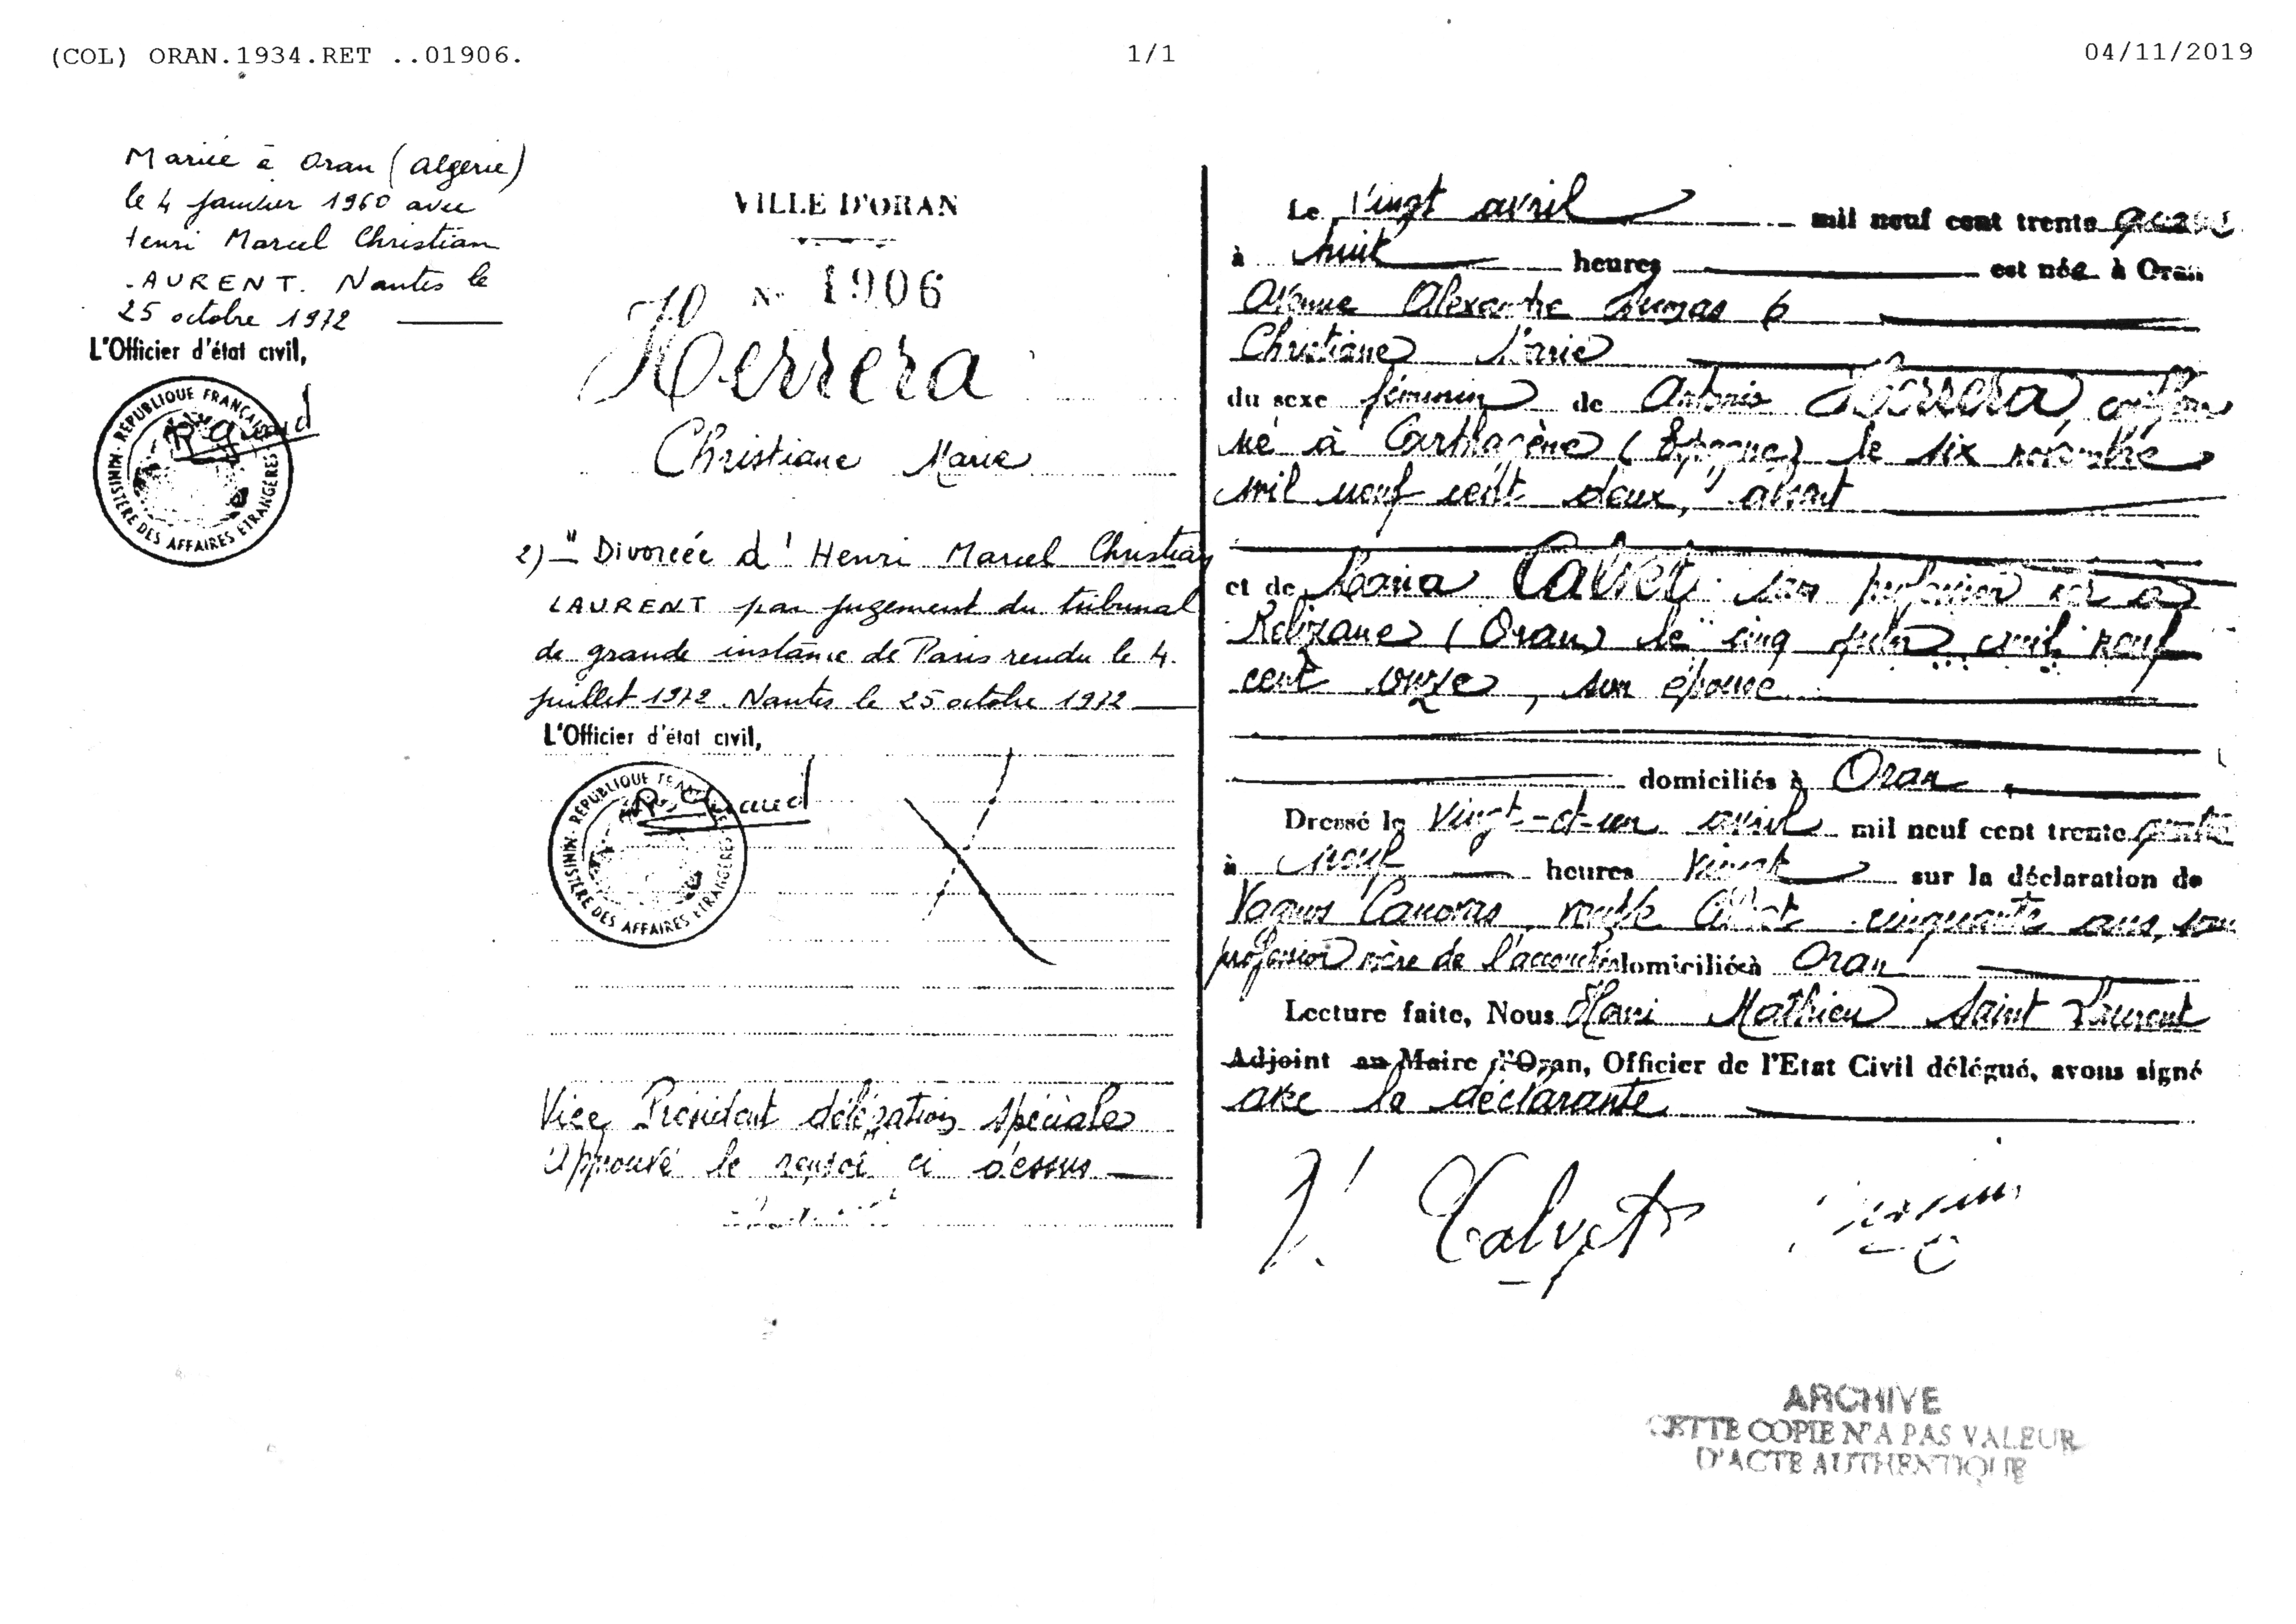 (COL) ORAN.1934.RET ..01906.
1/1
04/11/2019
Mariée à Oran (Algérie)
le 4 janvier 1960 avec
Henri Marcel Christian
LAURENT. Nantes le
25 octobre 1972
L'Officier d'état civil,
MINISTÈRE DES AFFAIRES ETRANGÈRES
VILLE D'ORAN
N° 1906
Herrera
Christiane Marie
2) - Divorcée d'Henri Marcel Christian
LAURENT par jugement du tribunal
de grande instance de Paris rendu le 4
juillet 1972. Nantes le 25 octobre 1972
L'Officier d'état civil,
MINISTÈRE DES AFFAIRES ETRANGÈRES
Vice Président délégation spéciale
Approuvé le renvoi ci dessus
Le vingt avril mil neuf cent trente quatre
à huit heures est née à Oran
Avenue Alexandre Dumas 6
Christiane Marie
du sexe féminin de Antonio Herrera, coiffeur
né à Carthagène (Espagne) le six novembre
mil neuf cent deux, absent
et de Maria Calvet sans profession née à
Relizane (Oran) le cinq mil neuf
cent onze, son épouse
domiciliés à Oran
Dressé le vingt-et-un avril mil neuf cent trente quatre
à neuf heures vingt sur la déclaration de
Canovas, cinquante ans, sans
profession mère de l'accouchée domiciliée à Oran
Lecture faite, Nous Mathieu Saint Laurent
Adjoint au Maire d'Oran, Officier de l'Etat Civil délégué, avons signé
avec la déclarante
Calvet
ARCHIVE
CETTE COPIE N'A PAS VALEUR
D'ACTE AUTHENTIQUE